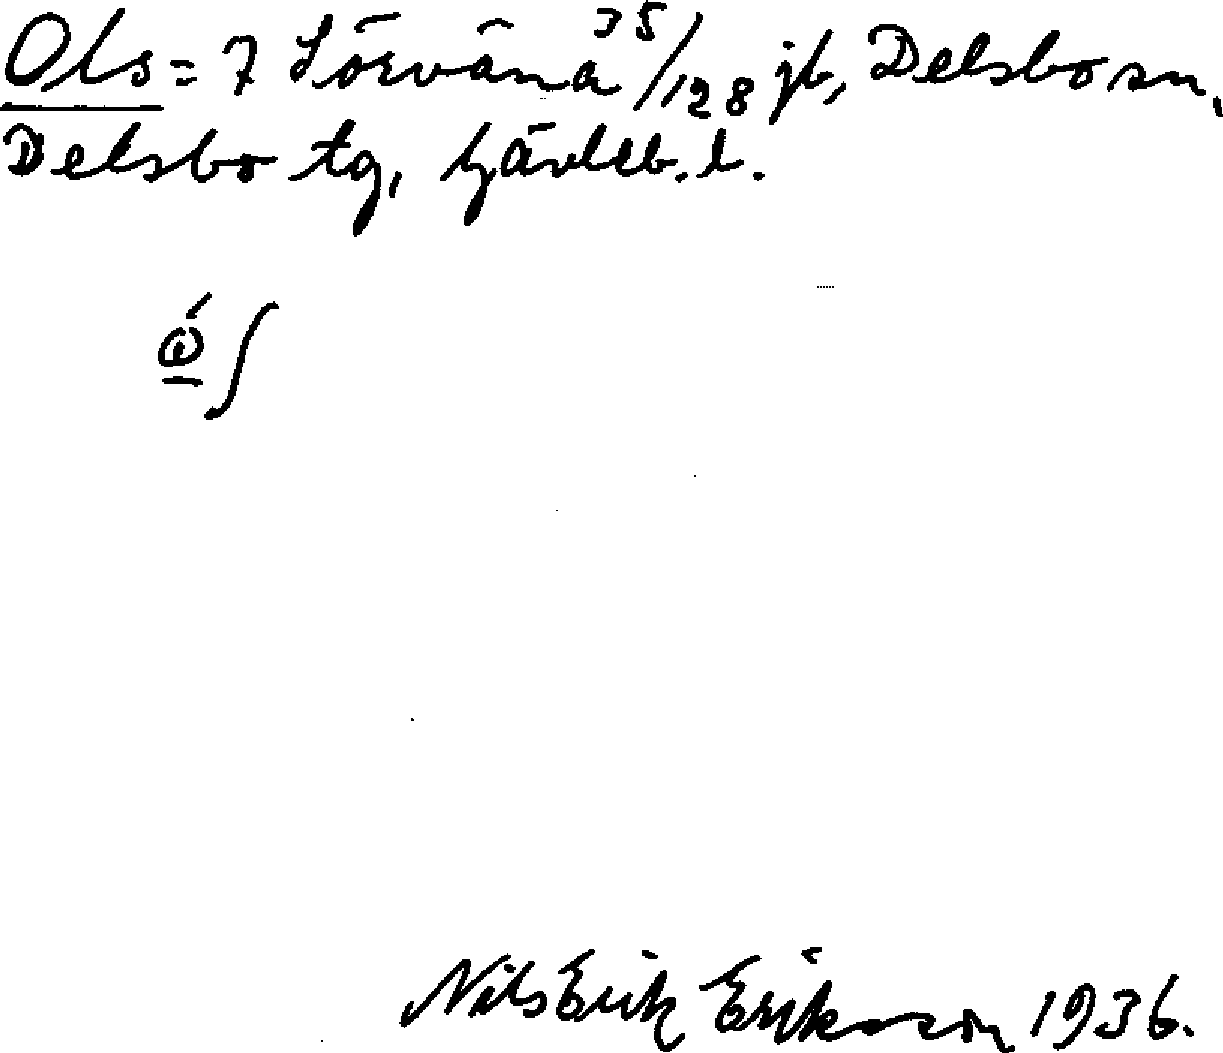 Ols = 7 Sörväna 35/128 jb, Delsbo sn,
Delsbo tg, Gävleb. l.
Nils Erik Eriksson 1936.